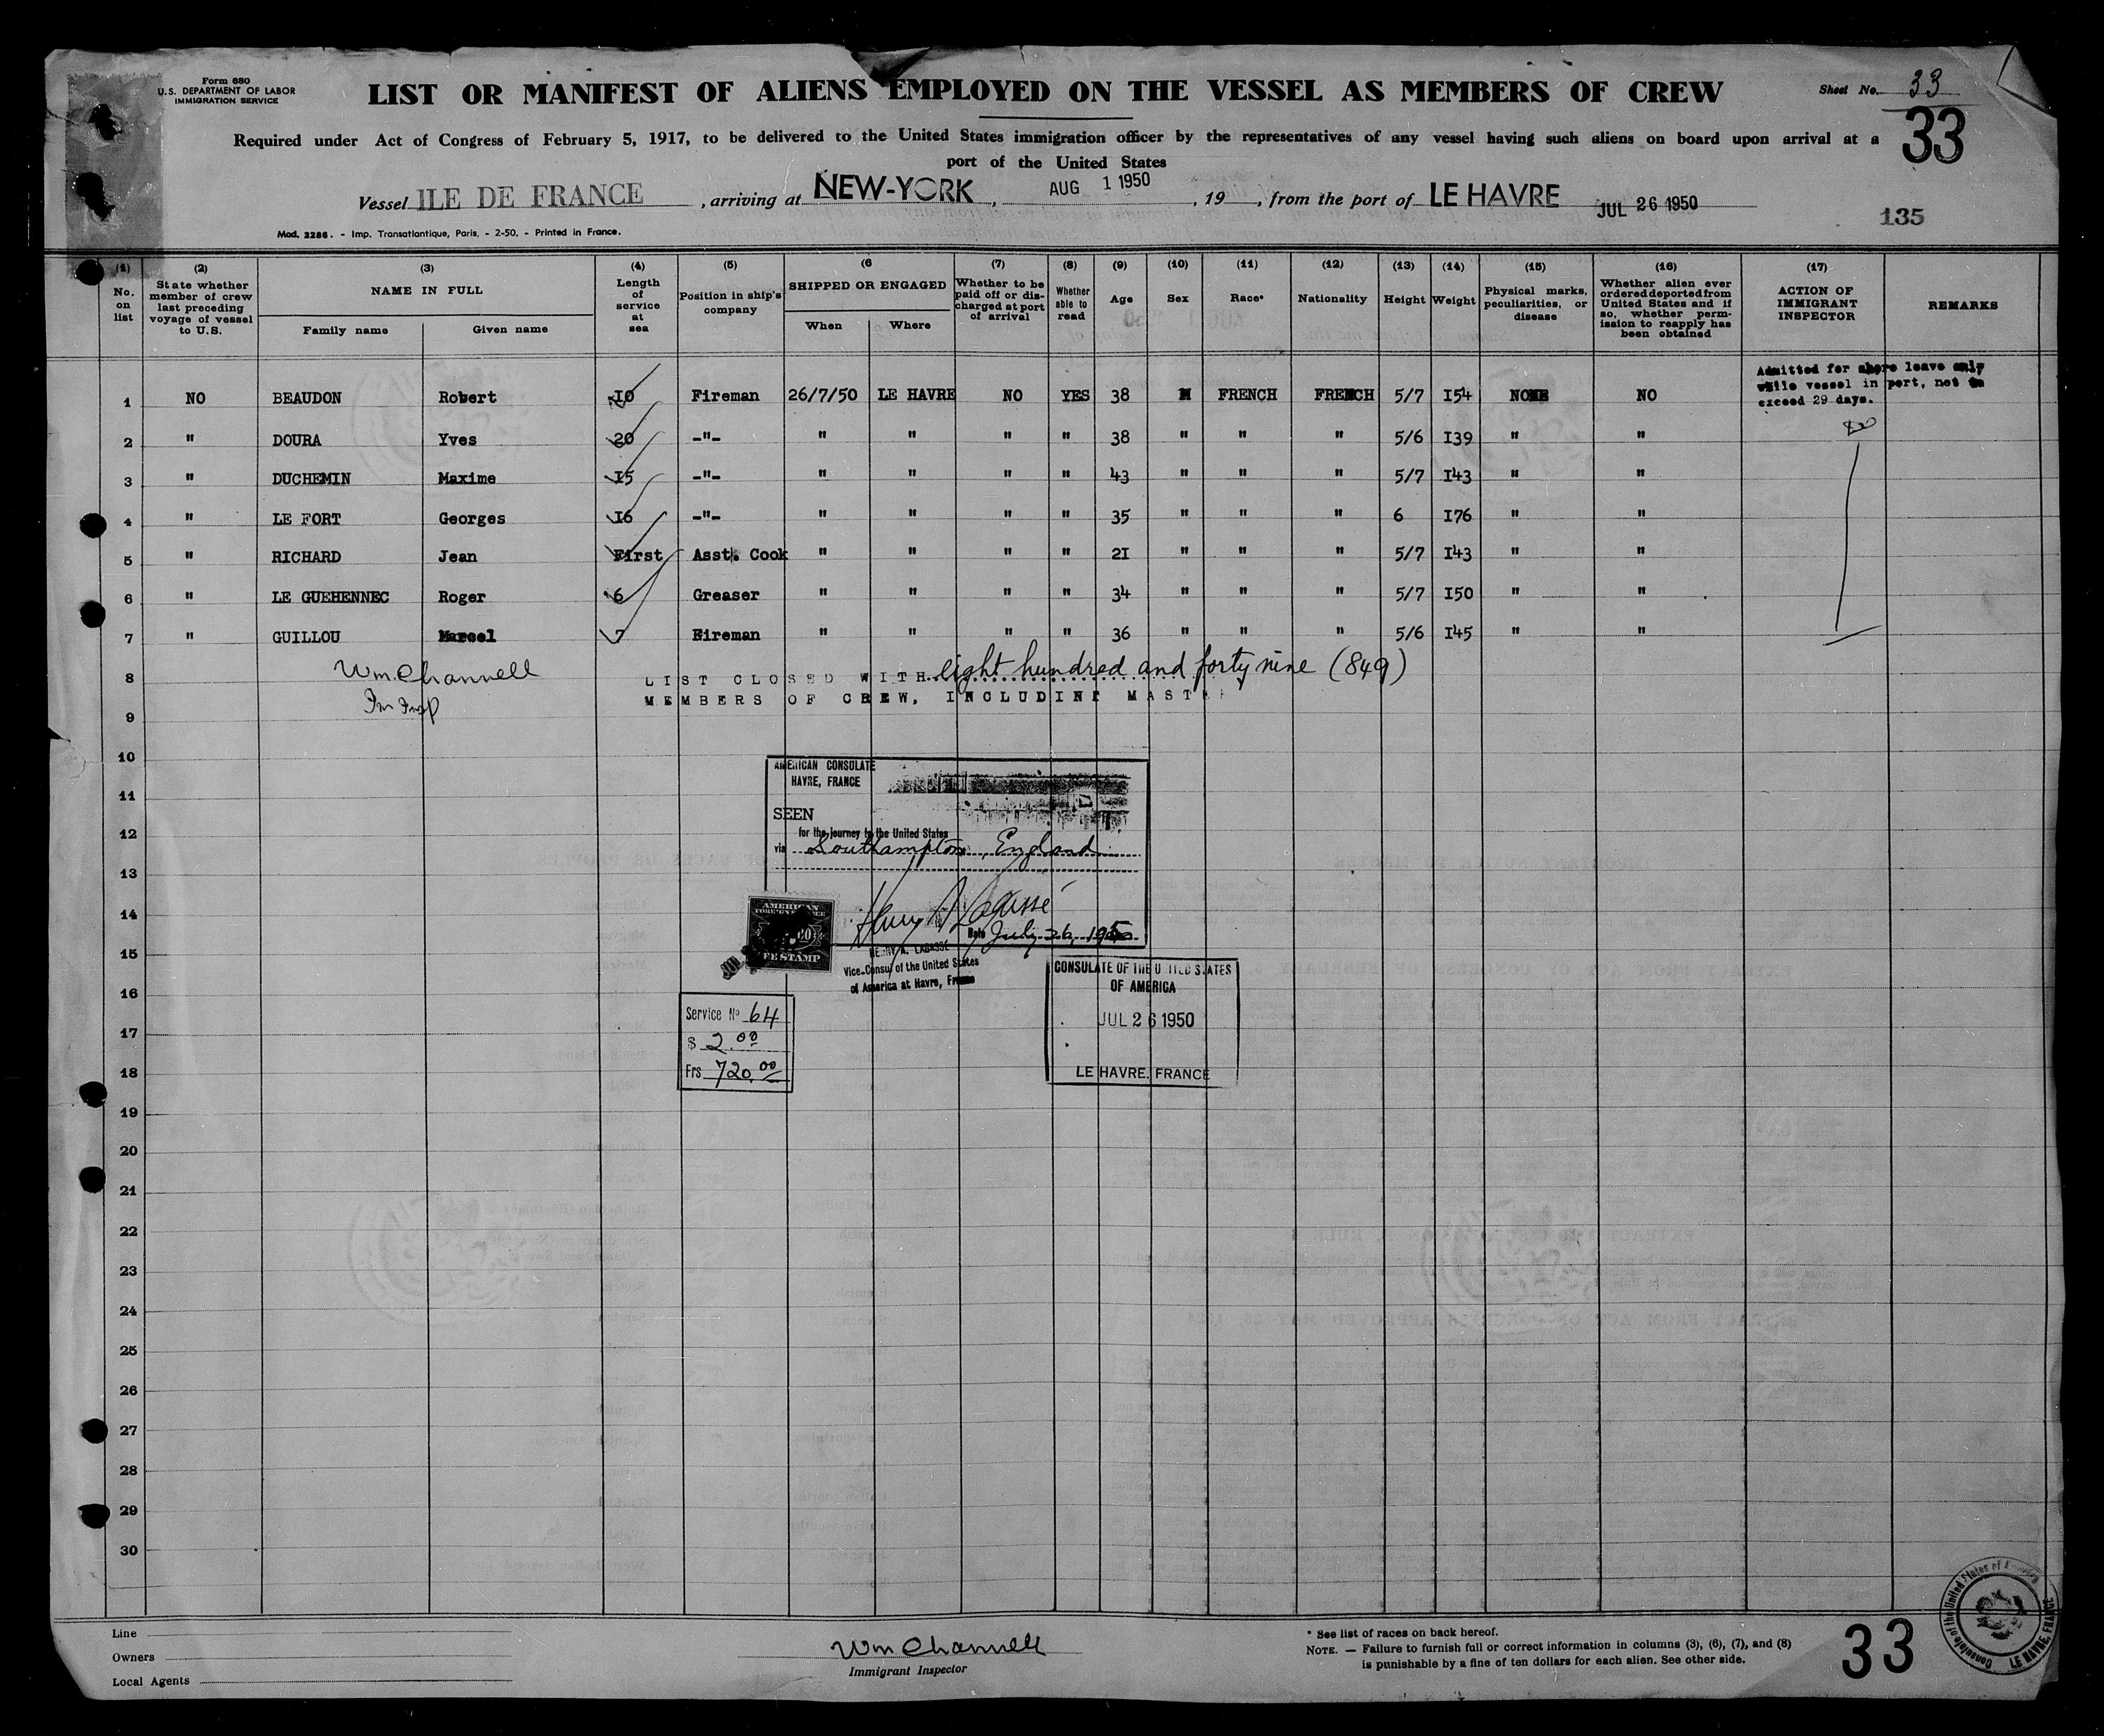 Form 680
U.S. DEPARTMENT OF LABOR
IMMIGRATION SERVICE
LIST OR MANIFEST OF ALIENS EMPLOYED ON THE VESSEL AS MEMBERS OF CREW
Sheet No. 33
33
Required under Act of Congress of February 5, 1917, to be delivered to the United States immigration officer by the representatives of any vessel having such aliens on board upon arrival at a
port of the United States
Vessel ILE DE FRANCE, arriving at NEW-YORK, AUG 1 1950, 19, from the port of LE HAVRE JUL 26 1950
135
Mod. 2286. - Imp. Transatlantique, Paris. - 2-50. - Printed in France.
(1) No. on list
(2) State whether member of crew last preceding voyage of vessel to U.S.
(3) NAME IN FULL Family name Given name
(4) Length of service at sea
(5) Position in ship's company
(6 SHIPPED OR ENGAGED When Where
(7) Whether to be paid off or discharged at port of arrival
(8) Whether able to read
(9) Age
(10) Sex
(11) Race*
(12) Nationality
(13) Height
(14) Weight
(15) Physical marks, peculiarities, or disease
(16) Whether alien ever ordered deported from United States and if so, whether permission to reapply has been obtained
(17) ACTION OF IMMIGRANT INSPECTOR
REMARKS
Admitted for shore leave only
while vessel in port, not to
exceed 29 days.
1 NO BEAUDON Robert 10 Fireman 26/7/50 LE HAVRE NO YES 38 M FRENCH FRENCH 5/7 I54 NONE NO
2 " DOURA Yves 20 -"- " " " " 38 " " " 5/6 I39 " "
3 " DUCHEMIN Maxime I5 -"- " " " " 43 " " " 5/7 I43 " "
4 " LE FORT Georges I6 -"- " " " " 35 " " " 6 I76 " "
5 " RICHARD Jean First Asst. Cook " " " " 2I " " " 5/7 I43 " "
6 " LE GUEHENNEC Roger 6 Greaser " " " " 34 " " " 5/7 I50 " "
7 " GUILLOU Marcel 7 Fireman " " " " 36 " " " 5/6 I45 " "
8 Wm Channell LIST CLOSED WITH eight hundred and forty nine (849)
MEMBERS OF CREW, INCLUDING MAST
9
10
11
12
13
14
15
16
17
18
19
20
21
22
23
24
25
26
27
28
29
30
AMERICAN CONSULATE
HAVRE, FRANCE
SEEN
for the journey to the United States
via Southampton, England
Henry A. Lagassé
Date July 26, 1950
AMERICAN
FOREIGN SERVICE
FEE STAMP
HENRY A. LAGASSÉ
Vice-Consul of the United States
of America at Havre, France
Service No 64
$ 2.00
Frs 720.00
CONSULATE OF THE UNITED STATES
OF AMERICA
JUL 26 1950
LE HAVRE, FRANCE
Line
Owners
Local Agents
Wm Channell
Immigrant Inspector
* See list of races on back hereof.
NOTE. — Failure to furnish full or correct information in columns (3), (6), (7), and (8)
is punishable by a fine of ten dollars for each alien. See other side.
33
Consulate of the United States of America
LE HAVRE, FRANCE